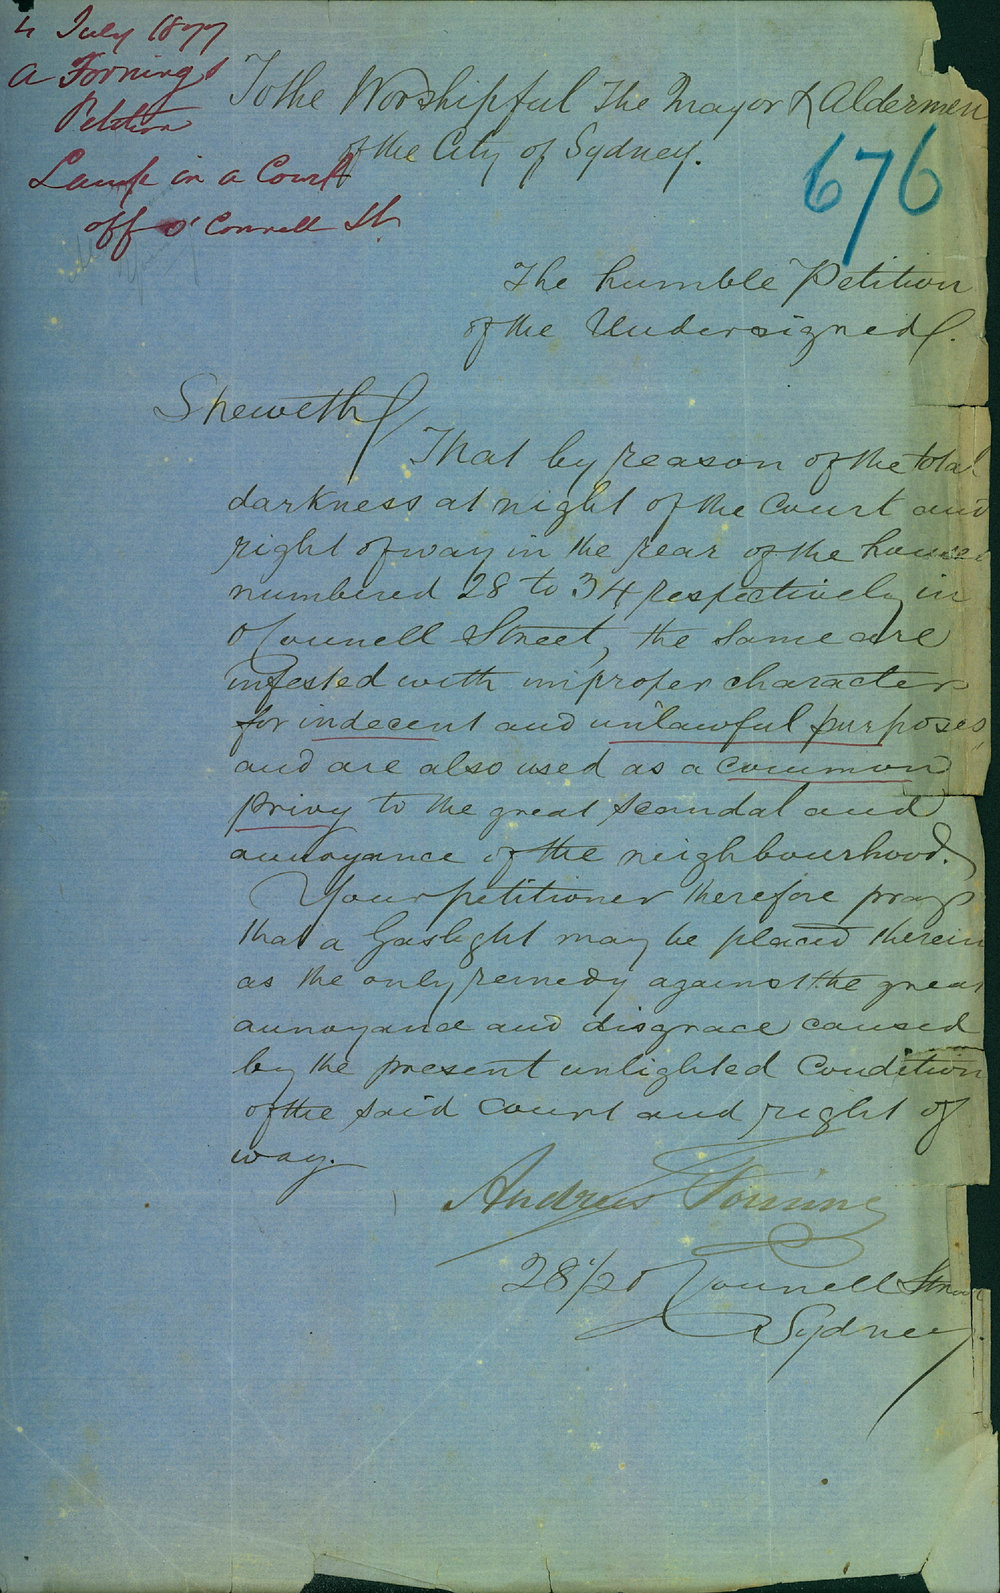 4 July 1877
A Fornings
Petition
Lamp in a Court
off O'Connell St.
To the Worshipful The Mayor & Aldermen
of the City of Sydney.
676
The humble Petition
of the Undersigned.
Sheweth
That by reason of the total
darkness at night of the Court and
right of way in the rear of the houses
numbered 28 to 34 respectively in
O'Connell Street, the same are
infested with improper characters
for indecent and unlawful purposes
and are also used as a common
privy to the great scandal and
annoyance of the neighbourhood.
Your petitioner therefore prays
that a Gaslight may be placed therein
as the only remedy against the great
annoyance and disgrace caused
by the present unlighted Condition
of the said Court and right of
way.
Andrew Forning
28 1/2 O'Connell Street
Sydney.